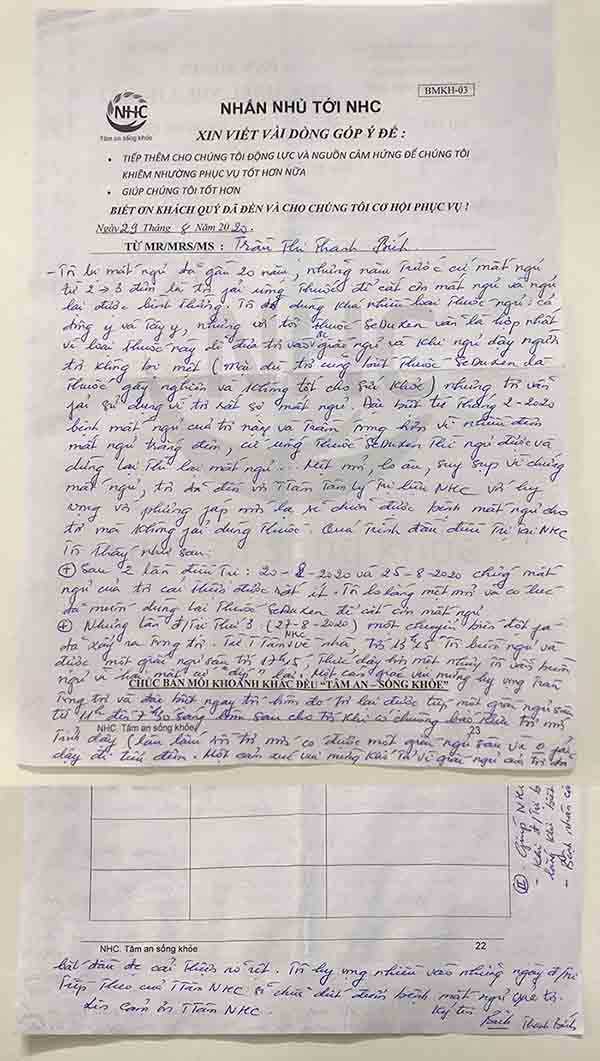 NHC
Tâm an sống khỏe
BMKH-03
NHẮN NHỦ TỚI NHC
XIN VIẾT VÀI DÒNG GÓP Ý ĐỂ :
• TIẾP THÊM CHO CHÚNG TÔI ĐỘNG LỰC VÀ NGUỒN CẢM HỨNG ĐỂ CHÚNG TÔI
KHIÊM NHƯỜNG PHỤC VỤ TỐT HƠN NỮA
• GIÚP CHÚNG TÔI TỐT HƠN
BIẾT ƠN KHÁCH QUÝ ĐÃ ĐẾN VÀ CHO CHÚNG TÔI CƠ HỘI PHỤC VỤ !
Ngày 29 Tháng 8 Năm 2020.
TỪ MR/MRS/MS : Trần Thị Thanh Bích.
- Tôi bị mất ngủ đã gần 20 năm, những năm trước cứ mất ngủ
từ 2 → 3 đêm là tôi fải uống thuốc để cắt cơn mất ngủ và ngủ
lại được bình thường. Tôi đã dùng khá nhiều loại thuốc ngủ: có
đông y và tây y, nhưng với tôi thuốc SeDuxen vẫn là hợp nhất
vì loại thuốc này dễ đưa tôi vào giấc ngủ và khi ngủ dậy người
tôi không bị mệt (mặc dù tôi cũng biết thuốc SeDuxen là
thuốc gây nghiện và không tốt cho sức khỏe) nhưng tôi vẫn
fải sử dụng vì tôi rất sợ mất ngủ. Đặc biệt từ tháng 2-2020
bệnh mất ngủ của tôi nặng và trầm trọng hơn vì nhiều đêm
mất ngủ trắng đêm, cứ uống thuốc SeDuxen thì ngủ được và
dừng lại thì lại mất ngủ... Mệt mỏi, lo âu, suy sụp vì chứng
mất ngủ, tôi đã đến với TTâm Tâm lý trị liệu NHC với hy
vọng với phương fáp mới lạ sẽ chữa được bệnh mất ngủ cho
tôi mà không fải dùng thuốc. Quá trình điều trị tại NHC
tôi thấy như sau:
(+) Sau 2 lần điều trị: 20-8-2020 và 25-8-2020 chứng mất
ngủ của tôi cải thiện được rất ít. Tôi lo lắng mệt mỏi và có lúc
đã muốn dùng lại thuốc SeDuxen để cắt cơn mất ngủ.
(+) Nhưng lần đ/trị thứ 3 (27-8-2020) một chuyển biến tốt
đã xảy ra trong tôi. Từ TTâm NHC về nhà, tới 13h15 tôi buồn ngủ và
được một giấc ngủ sâu tới 17h15, thức dậy
CHÚC BẠN MỖI KHOẢNH KHẮC ĐỀU "TÂM AN – SỐNG KHỎE"
trong tôi và đặc biệt ngay tối hôm đó tôi lại được tiếp một giấc ngủ sâu
từ 11h đến 7h30 sáng hôm sau cho tới khi có chuông báo thức tôi mới
NHC. Tâm an sống khỏe
23
tỉnh dậy (lâu lắm rồi tôi mới có được một giấc ngủ sâu và 0 fải
dậy đi tiểu đêm. Một cảm xúc vui mừng khó tả vì giấc ngủ của tôi đã
(II) Giúp NHC
- Khi đ/trị
- Bệnh nhân có
NHC. Tâm an sống khỏe
22
bắt đầu đc cải thiện rõ rệt. Tôi hy vọng nhiều vào những ngày đ/trị
tiếp theo của TTâm NHC sẽ chấm dứt được bệnh mất ngủ của tôi.
Xin cảm ơn TTâm NHC.
Ký tên
Bích
Thanh Bích